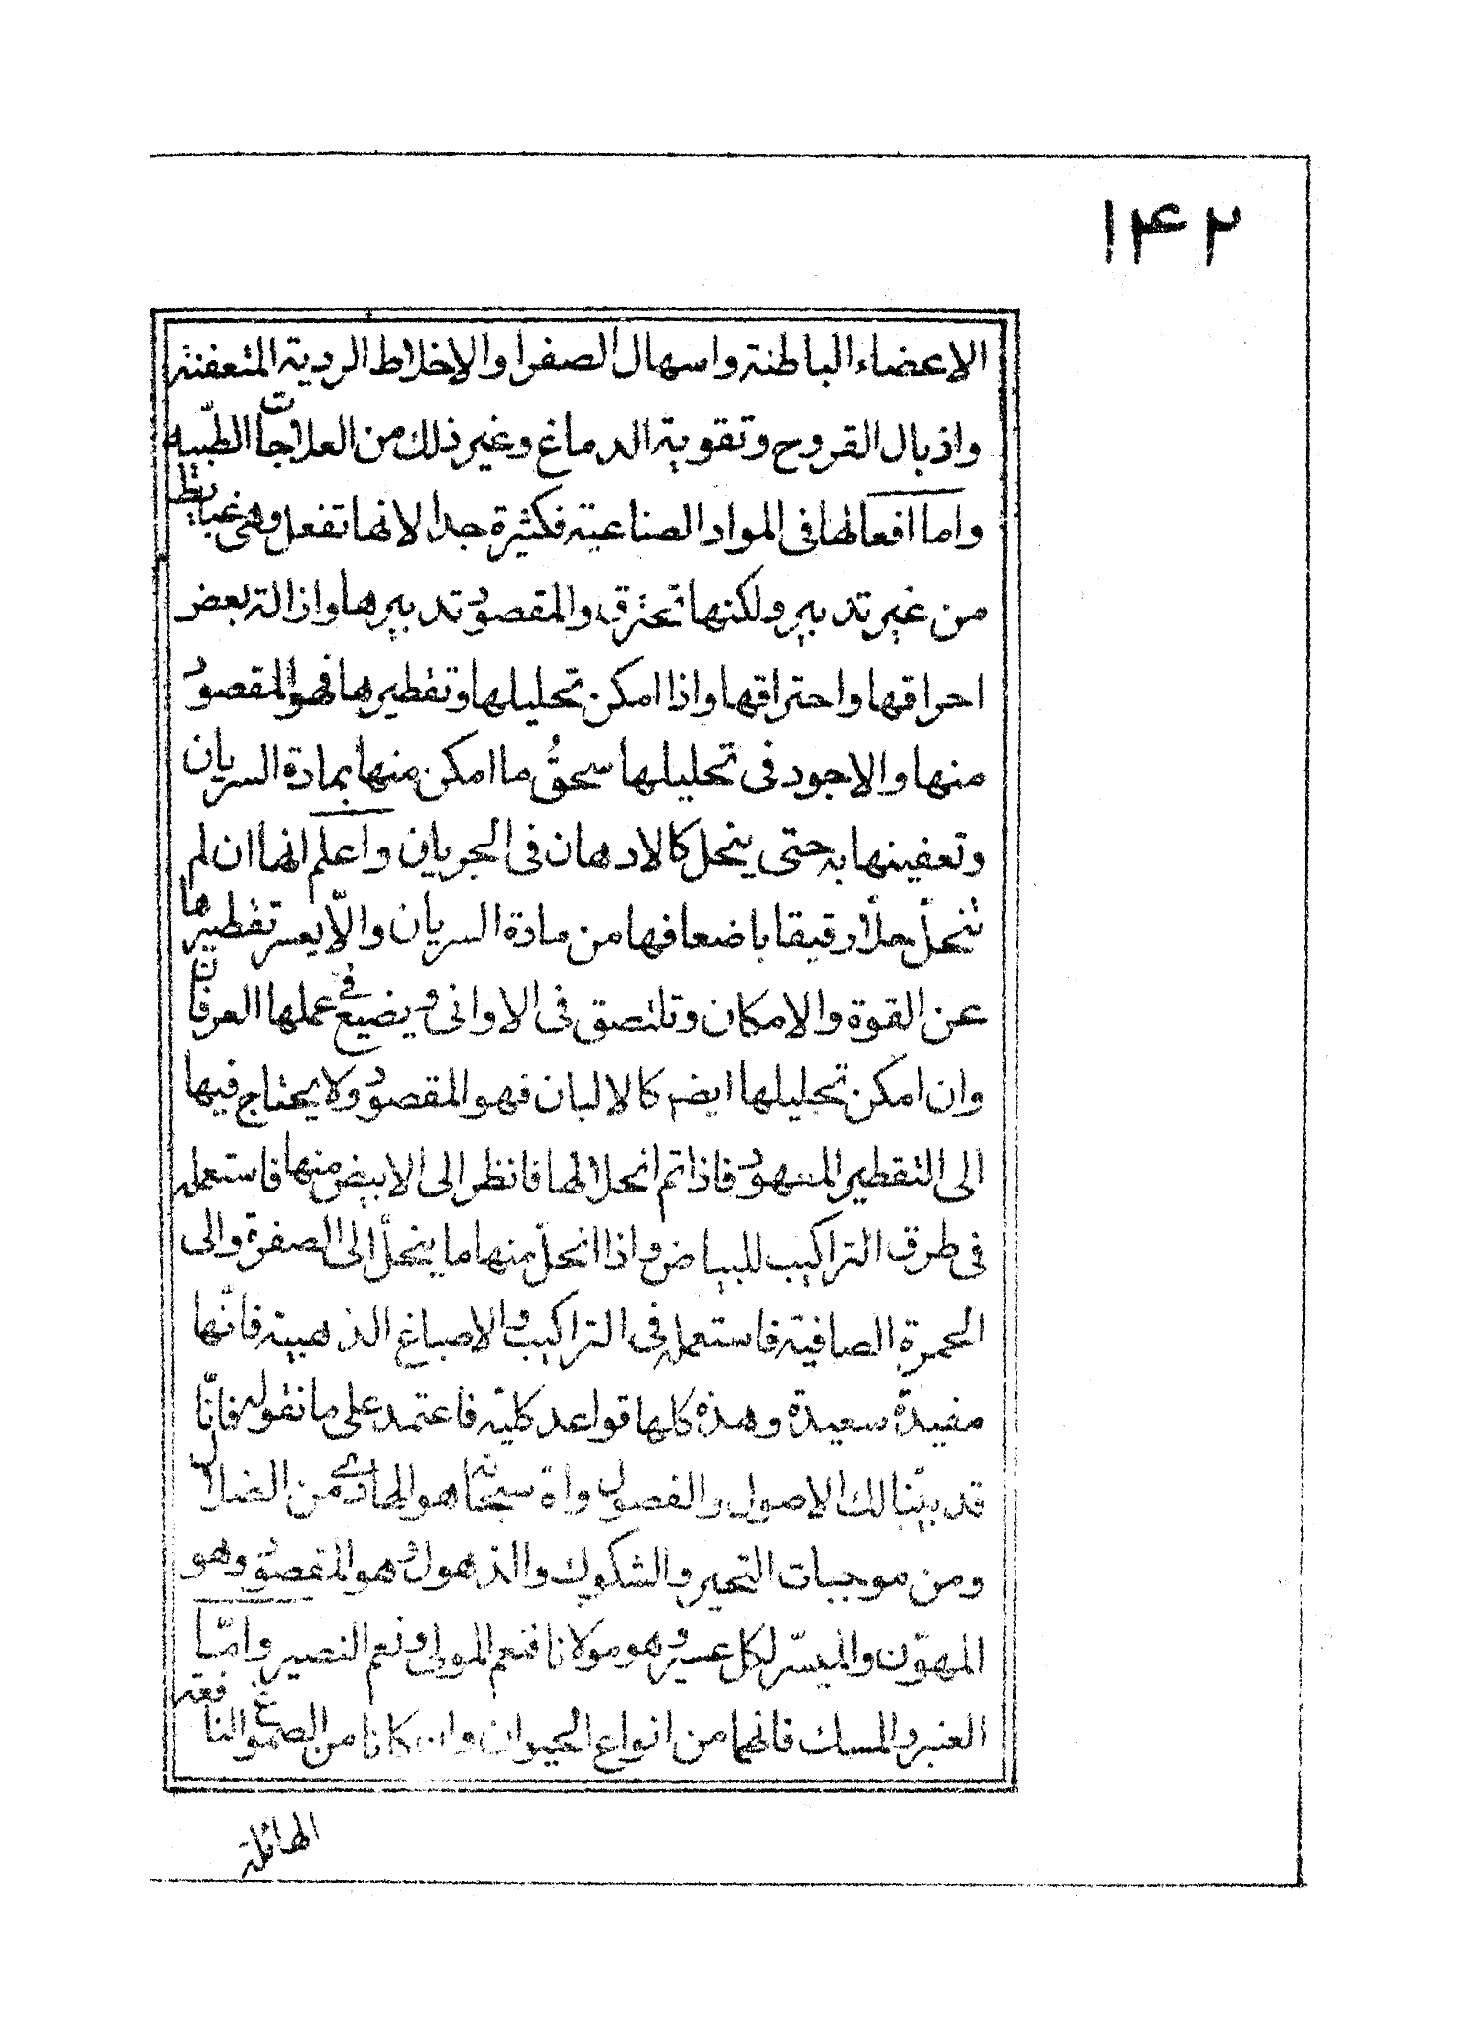 ۱۴۲
الاعضاء الباطنة واسهال الصفرا والاخلاط الردية المتعفنة
واذبال القروح وتقوية الدماغ وغير ذلك من العلاجات الطبّيه
واما افعالها فى المواد الصناعية فكثيرة جدا لانها تفعل وهى غبايط
من غير تدبير ولكنها تحترق والمقصود تدبيرها وازالة بعض
احراقها واحتراقها واذا امكن تحليلها وتقطيرها فهو المقصود
منها والاجود فى تحليلها سحقُ ما امكن منها بمادة السريان
وتعفينها به حتى ينحل كالادهان فى الجريان واعلم انها ان لم
تنحلّ حلّا رقيقا باضعافها من مادة السريان والّا يعسر تقطيرها
عن القوة والامكان وتلتصق فى الاوانى ويضيع فى عملها العرفان
وان امكن تحليلها ايضم كالالبان فهو المقصود ولا يحتاج فيها
الى التقطير المشهود فاذا تم انحلالها فانظر الى الابيض منها فاستعمله
فى طرق التراكيب للبياض واذا انحلّ منها ما ينحلّ الى الصفرة والى
الحمرة الصافية فاستعمله فى التراكيب والاصباغ الذهبية فانّها
مفيدة سعيدة وهذه كلها قواعد كليّه فاعتمد على ما نقوله فانّا
قد بيّنا لك الاصول والفصول واة سبحانه هو الهادى من الضلال
ومن موجبات التحير والشكوك والذهول وهو المقصود وهو
المهوّن والميسّر لكل عسير وهو مولانا فنعم المولى ونعم النصير وامّا
العنبر والمسك فانهما من انواع الحيوان وان كانا من الصموغ النافعة
الهائلة